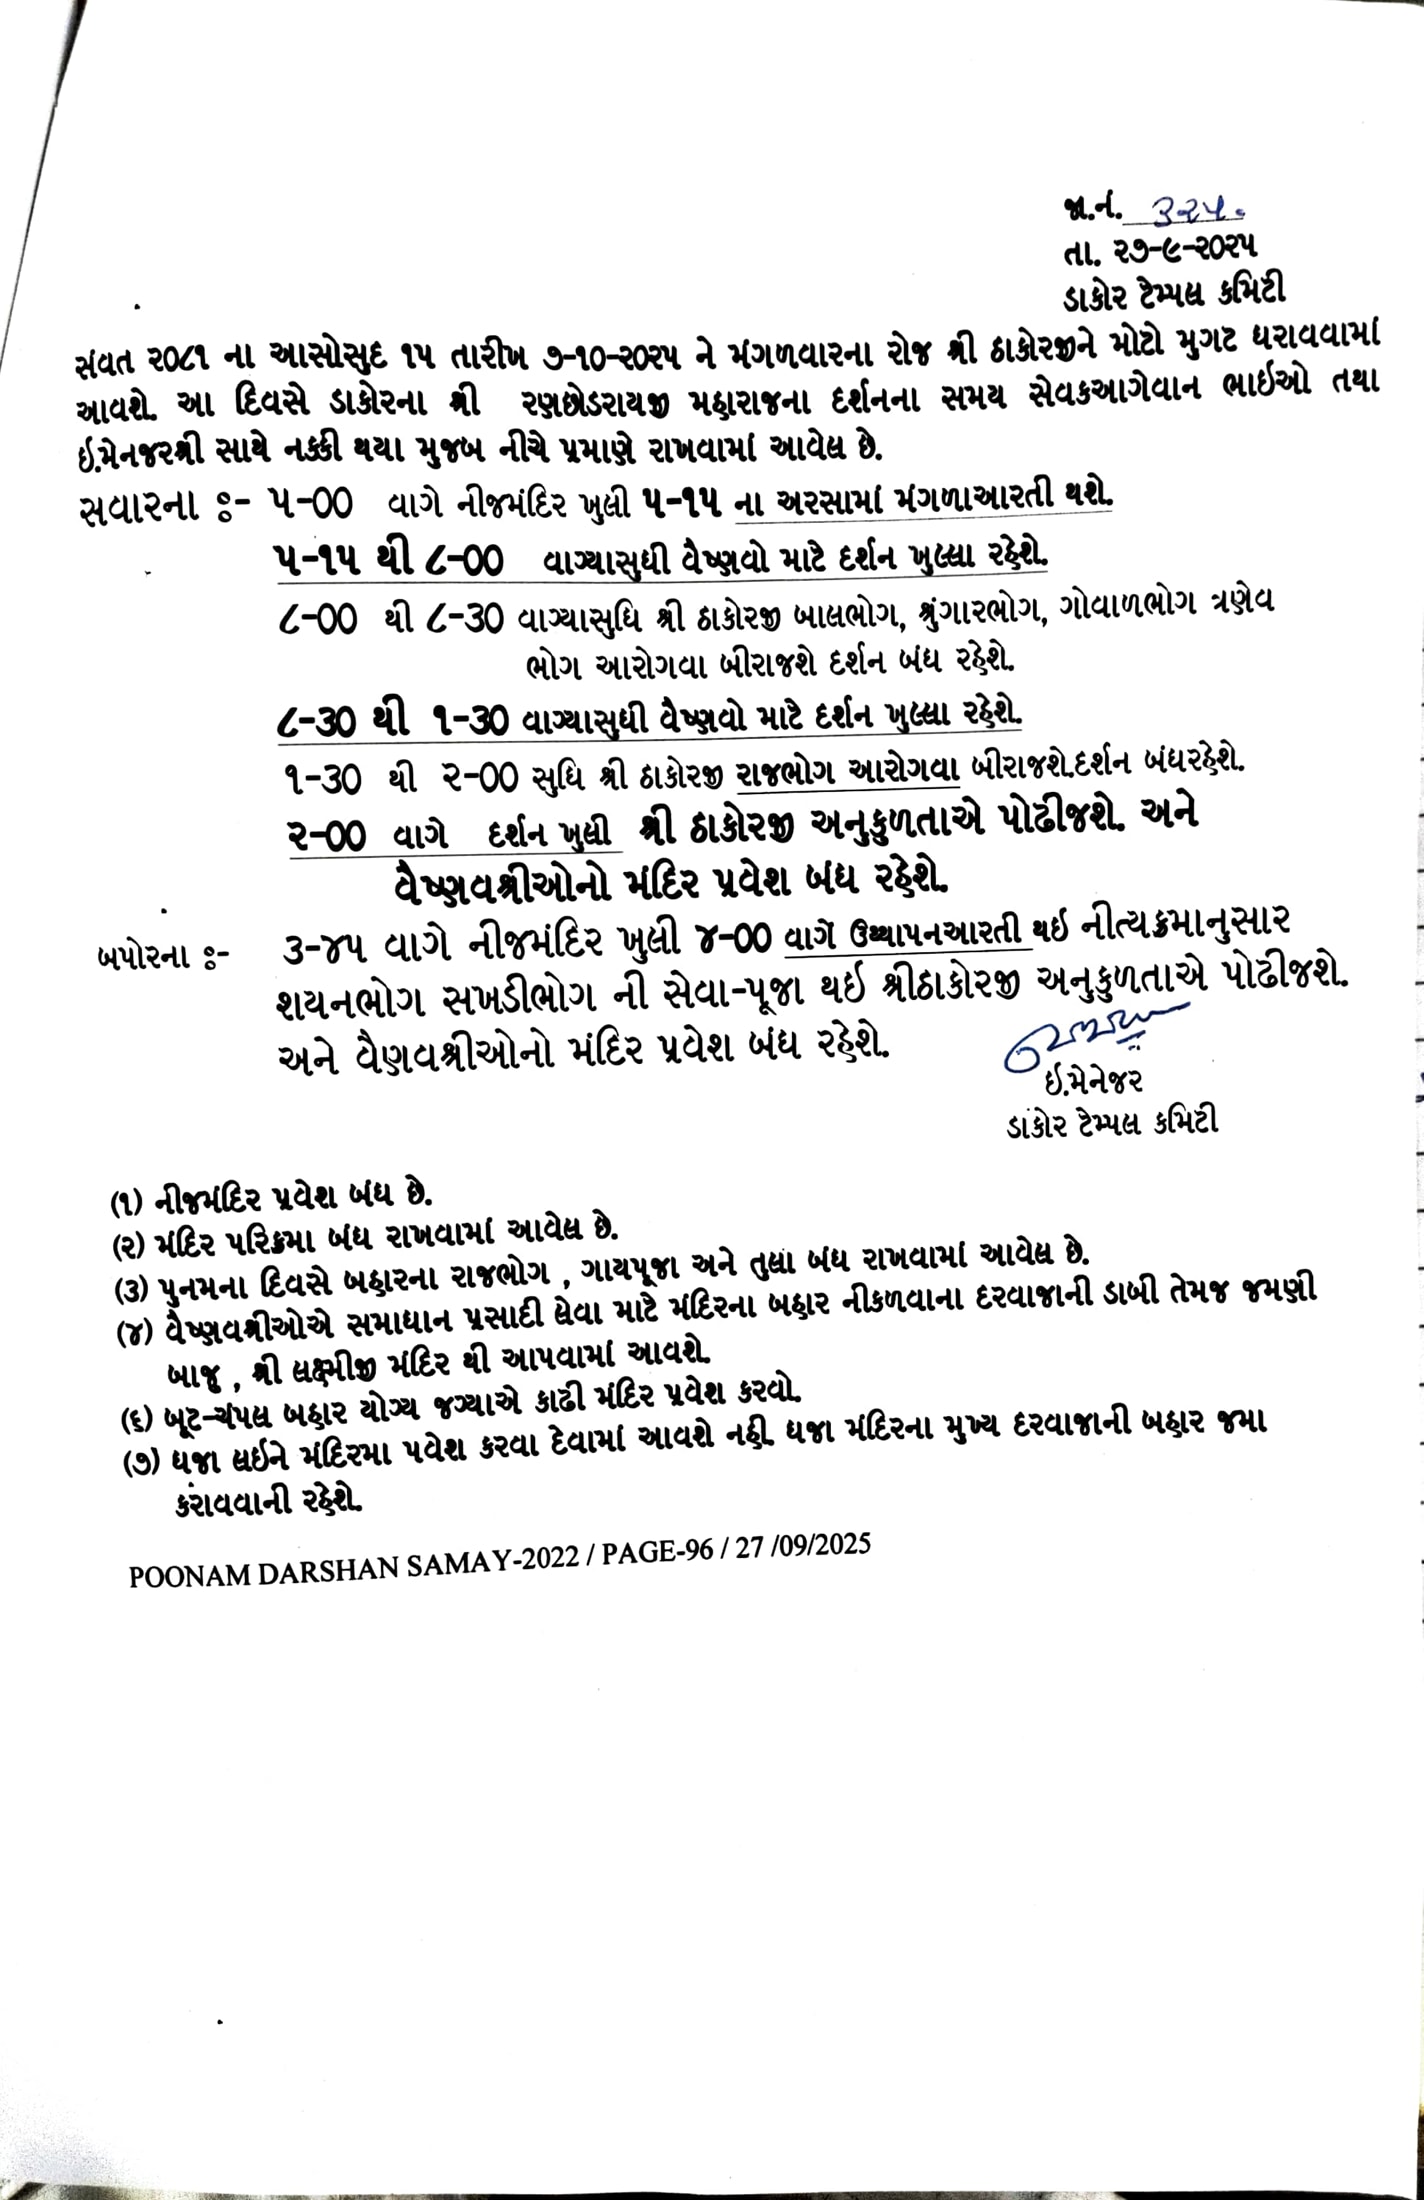 જા.નં. ૩૨૫.
તા. ૨૭-૯-૨૦૨૫
ડાકોર ટેમ્પલ કમિટી
સંવત ૨૦૮૧ ના આસોસુદ ૧૫ તારીખ ૭-૧૦-૨૦૨૫ ને મંગળવારના રોજ શ્રી ઠાકોરજીને મોટો મુગટ ધરાવવામાં
આવશે. આ દિવસે ડાકોરના શ્રી રણછોડરાયજી મહારાજના દર્શનના સમય સેવકઆગેવાન ભાઇઓ તથા
ઇ.મેનજરશ્રી સાથે નક્કી થયા મુજબ નીચે પ્રમાણે રાખવામાં આવેલ છે.
સવારના ઃ- ૫-૦૦ વાગે નીજમંદિર ખુલી ૫-૧૫ ના અરસામાં મંગળાઆરતી થશે.
૫-૧૫ થી ૮-૦૦ વાગ્યાસુધી વૈષ્ણવો માટે દર્શન ખુલ્લા રહેશે.
૮-૦૦ થી ૮-૩૦ વાગ્યાસુધિ શ્રી ઠાકોરજી બાલભોગ, શ્રુંગારભોગ, ગોવાળભોગ ત્રણેવ
ભોગ આરોગવા બીરાજશે દર્શન બંધ રહેશે.
૮-૩૦ થી ૧-૩૦ વાગ્યાસુધી વૈષ્ણવો માટે દર્શન ખુલ્લા રહેશે.
૧-૩૦ થી ૨-૦૦ સુધિ શ્રી ઠાકોરજી રાજભોગ આરોગવા બીરાજશે.દર્શન બંધરહેશે.
૨-૦૦ વાગે દર્શન ખુલી શ્રી ઠાકોરજી અનુકુળતાએ પોઢીજશે. અને
વૈષ્ણવશ્રીઓનો મંદિર પ્રવેશ બંધ રહેશે.
બપોરના ઃ- ૩-૪૫ વાગે નીજમંદિર ખુલી ૪-૦૦ વાગે ઉથ્થાપનઆરતી થઇ નીત્યક્રમાનુસાર
શયનભોગ સખડીભોગ ની સેવા-પૂજા થઇ શ્રીઠાકોરજી અનુકુળતાએ પોઢીજશે.
અને વૈણવશ્રીઓનો મંદિર પ્રવેશ બંધ રહેશે.
ઇ.મેનેજર
ડાકોર ટેમ્પલ કમિટી
(૧) નીજમંદિર પ્રવેશ બંધ છે.
(૨) મંદિર પરિક્રમા બંધ રાખવામાં આવેલ છે.
(૩) પુનમના દિવસે બહારના રાજભોગ , ગાયપૂજા અને તુલા બંધ રાખવામાં આવેલ છે.
(૪) વૈષ્ણવશ્રીઓએ સમાધાન પ્રસાદી લેવા માટે મંદિરના બહાર નીકળવાના દરવાજાની ડાબી તેમજ જમણી
બાજુ , શ્રી લક્ષ્મીજી મંદિર થી આપવામાં આવશે.
(૬) બૂટ-ચંપલ બહાર યોગ્ય જગ્યાએ કાઢી મંદિર પ્રવેશ કરવો.
(૭) ધજા લઇને મંદિરમા પવેશ કરવા દેવામાં આવશે નહી. ધજા મંદિરના મુખ્ય દરવાજાની બહાર જમા
કરાવવાની રહેશે.
POONAM DARSHAN SAMAY-2022 / PAGE-96 / 27 /09/2025